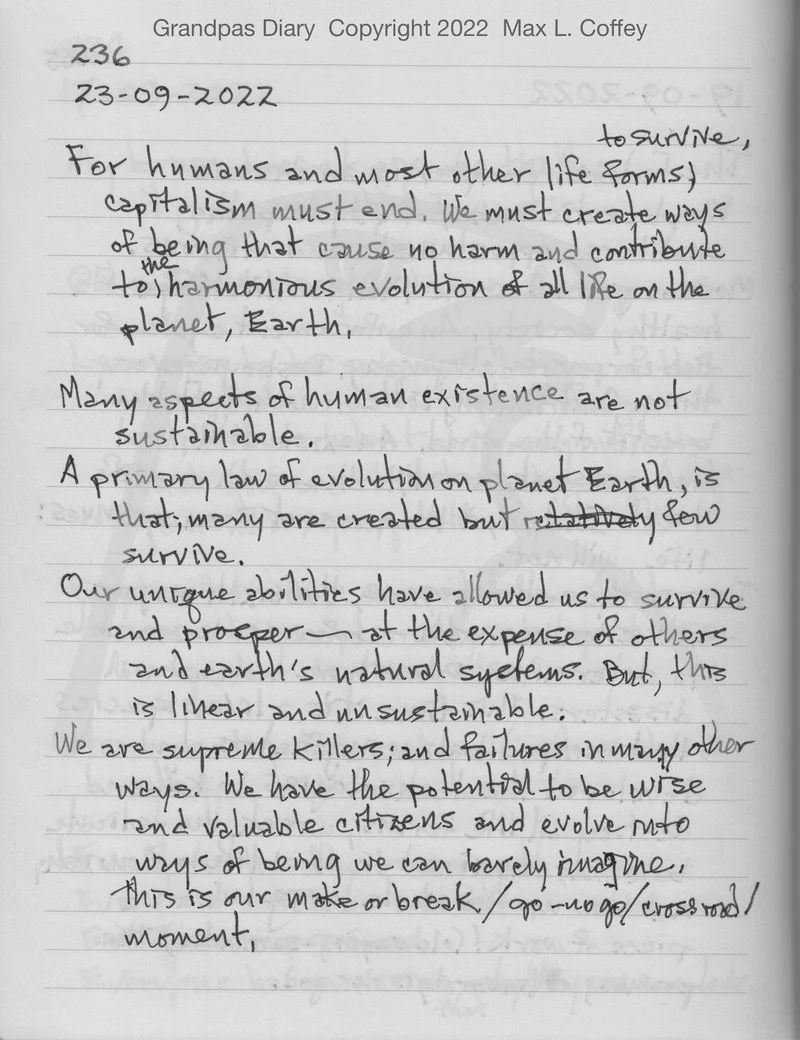 Grandpas Diary Copyright 2022 Max L. Coffey
236
23-09-2022
to survive,
For humans and most other life forms)
capitalism must end. We must create ways
of being that cause no harm and contribute
the
to) harmonious evolution of all life on the
planet, Earth,
Many aspects of human existence are not
sustainable.
A primary law of evolution on planet Earth, is
that; many are created but relatively few
survive.
Our unique abilities have allowed us to survive
and prosper — at the expense of others
and earth's natural systems. But, this
is linear and unsustainable.
We are supreme killers; and failures in many other
ways. We have the potential to be wise
and valuable citizens and evolve into
ways of being we can barely imagine.
This is our make or break/go-no go/crossroad/
moment,